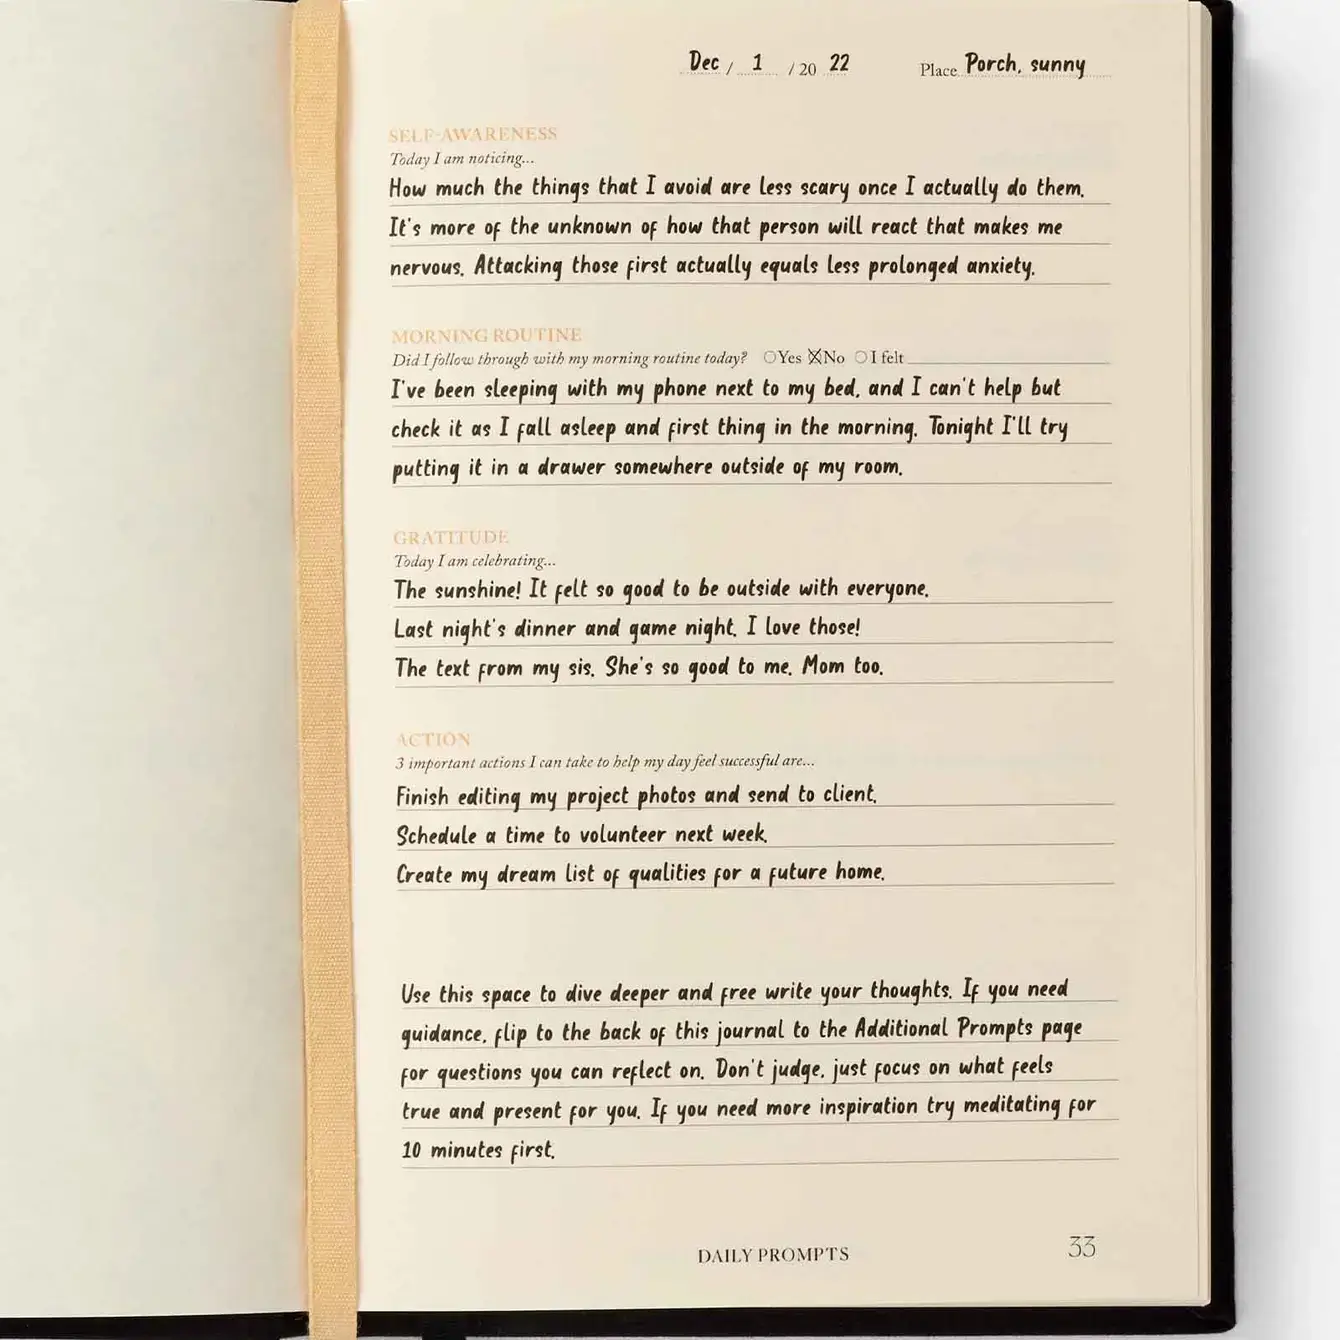 Dec / 1 / 20 22 Place Porch, sunny
SELF-AWARENESS
Today I am noticing...
How much the things that I avoid are less scary once I actually do them.
It's more of the unknown of how that person will react that makes me
nervous. Attacking those first actually equals less prolonged anxiety.
MORNING ROUTINE
Did I follow through with my morning routine today? Yes No I felt
I've been sleeping with my phone next to my bed, and I can't help but
check it as I fall asleep and first thing in the morning. Tonight I'll try
putting it in a drawer somewhere outside of my room.
GRATITUDE
Today I am celebrating...
The sunshine! It felt so good to be outside with everyone.
Last night's dinner and game night. I love those!
The text from my sis. She's so good to me. Mom too.
ACTION
3 important actions I can take to help my day feel successful are...
Finish editing my project photos and send to client.
Schedule a time to volunteer next week.
Create my dream list of qualities for a future home.
Use this space to dive deeper and free write your thoughts. If you need
guidance, flip to the back of this journal to the Additional Prompts page
for questions you can reflect on. Don't judge, just focus on what feels
true and present for you. If you need more inspiration try meditating for
10 minutes first.
DAILY PROMPTS 33